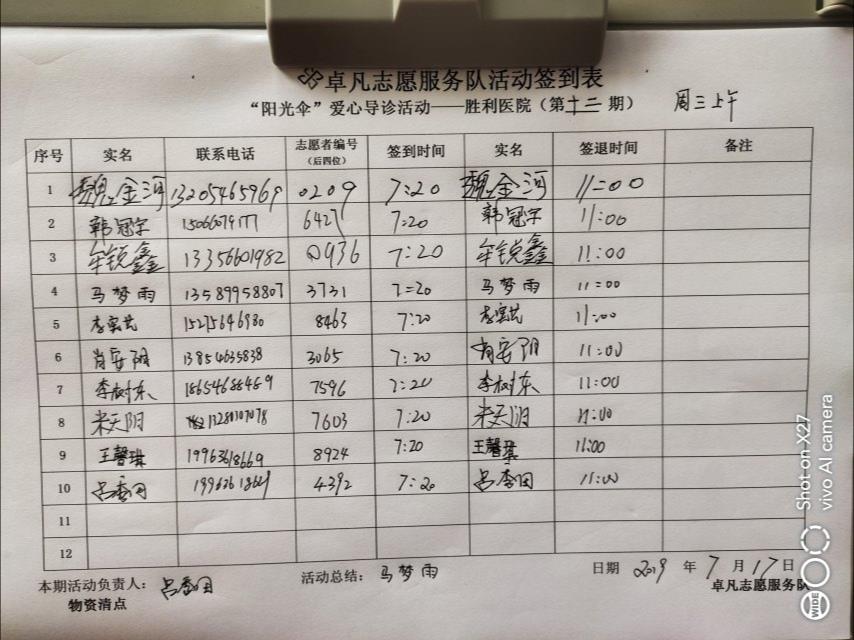 卓凡志愿服务队活动签到表
“阳光伞”爱心导诊活动——胜利医院（第十二期） 周三上午
序号 实名 联系电话 志愿者编号（后四位） 签到时间 实名 签退时间 备注
1 魏金河 13205465969 0209 7:20 魏金河 11:00
2 韩冠宇 15066079177 6427 7:20 韩冠宇 11:00
3 牟锐鑫 13356601982 0936 7:20 牟锐鑫 11:00
4 马梦雨 13589958807 3731 7:20 马梦雨 11:00
5 15275646980 8463 7:20 11:00
6 肖安阳 13854635838 3065 7:20 肖安阳 11:00
7 李树东 18654688489 7596 7:20 李树东 11:00
8 米天阴 13280107078 7603 7:20 米天阴 11:00
9 王馨琪 19963618669 8924 7:20 王馨琪 11:00
10 吕香田 4392 7:20 吕香田 11:00
11
12
本期活动负责人：吕香田 活动总结：马梦雨 日期 2019 年 7 月 17 日
物资清点 卓凡志愿服务队
Shot on X27
vivo AI camera
WIDE